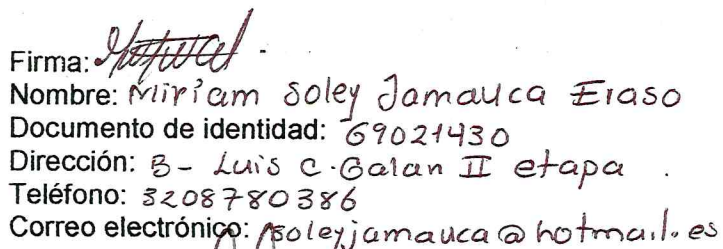 Firma:
Nombre: Miriam Soley Jamauca Eraso
Documento de identidad: 69021430
Dirección: B- Luis C. Galan II etapa.
Teléfono: 3208780386
Correo electrónico: soleyjamauca@hotmail.es